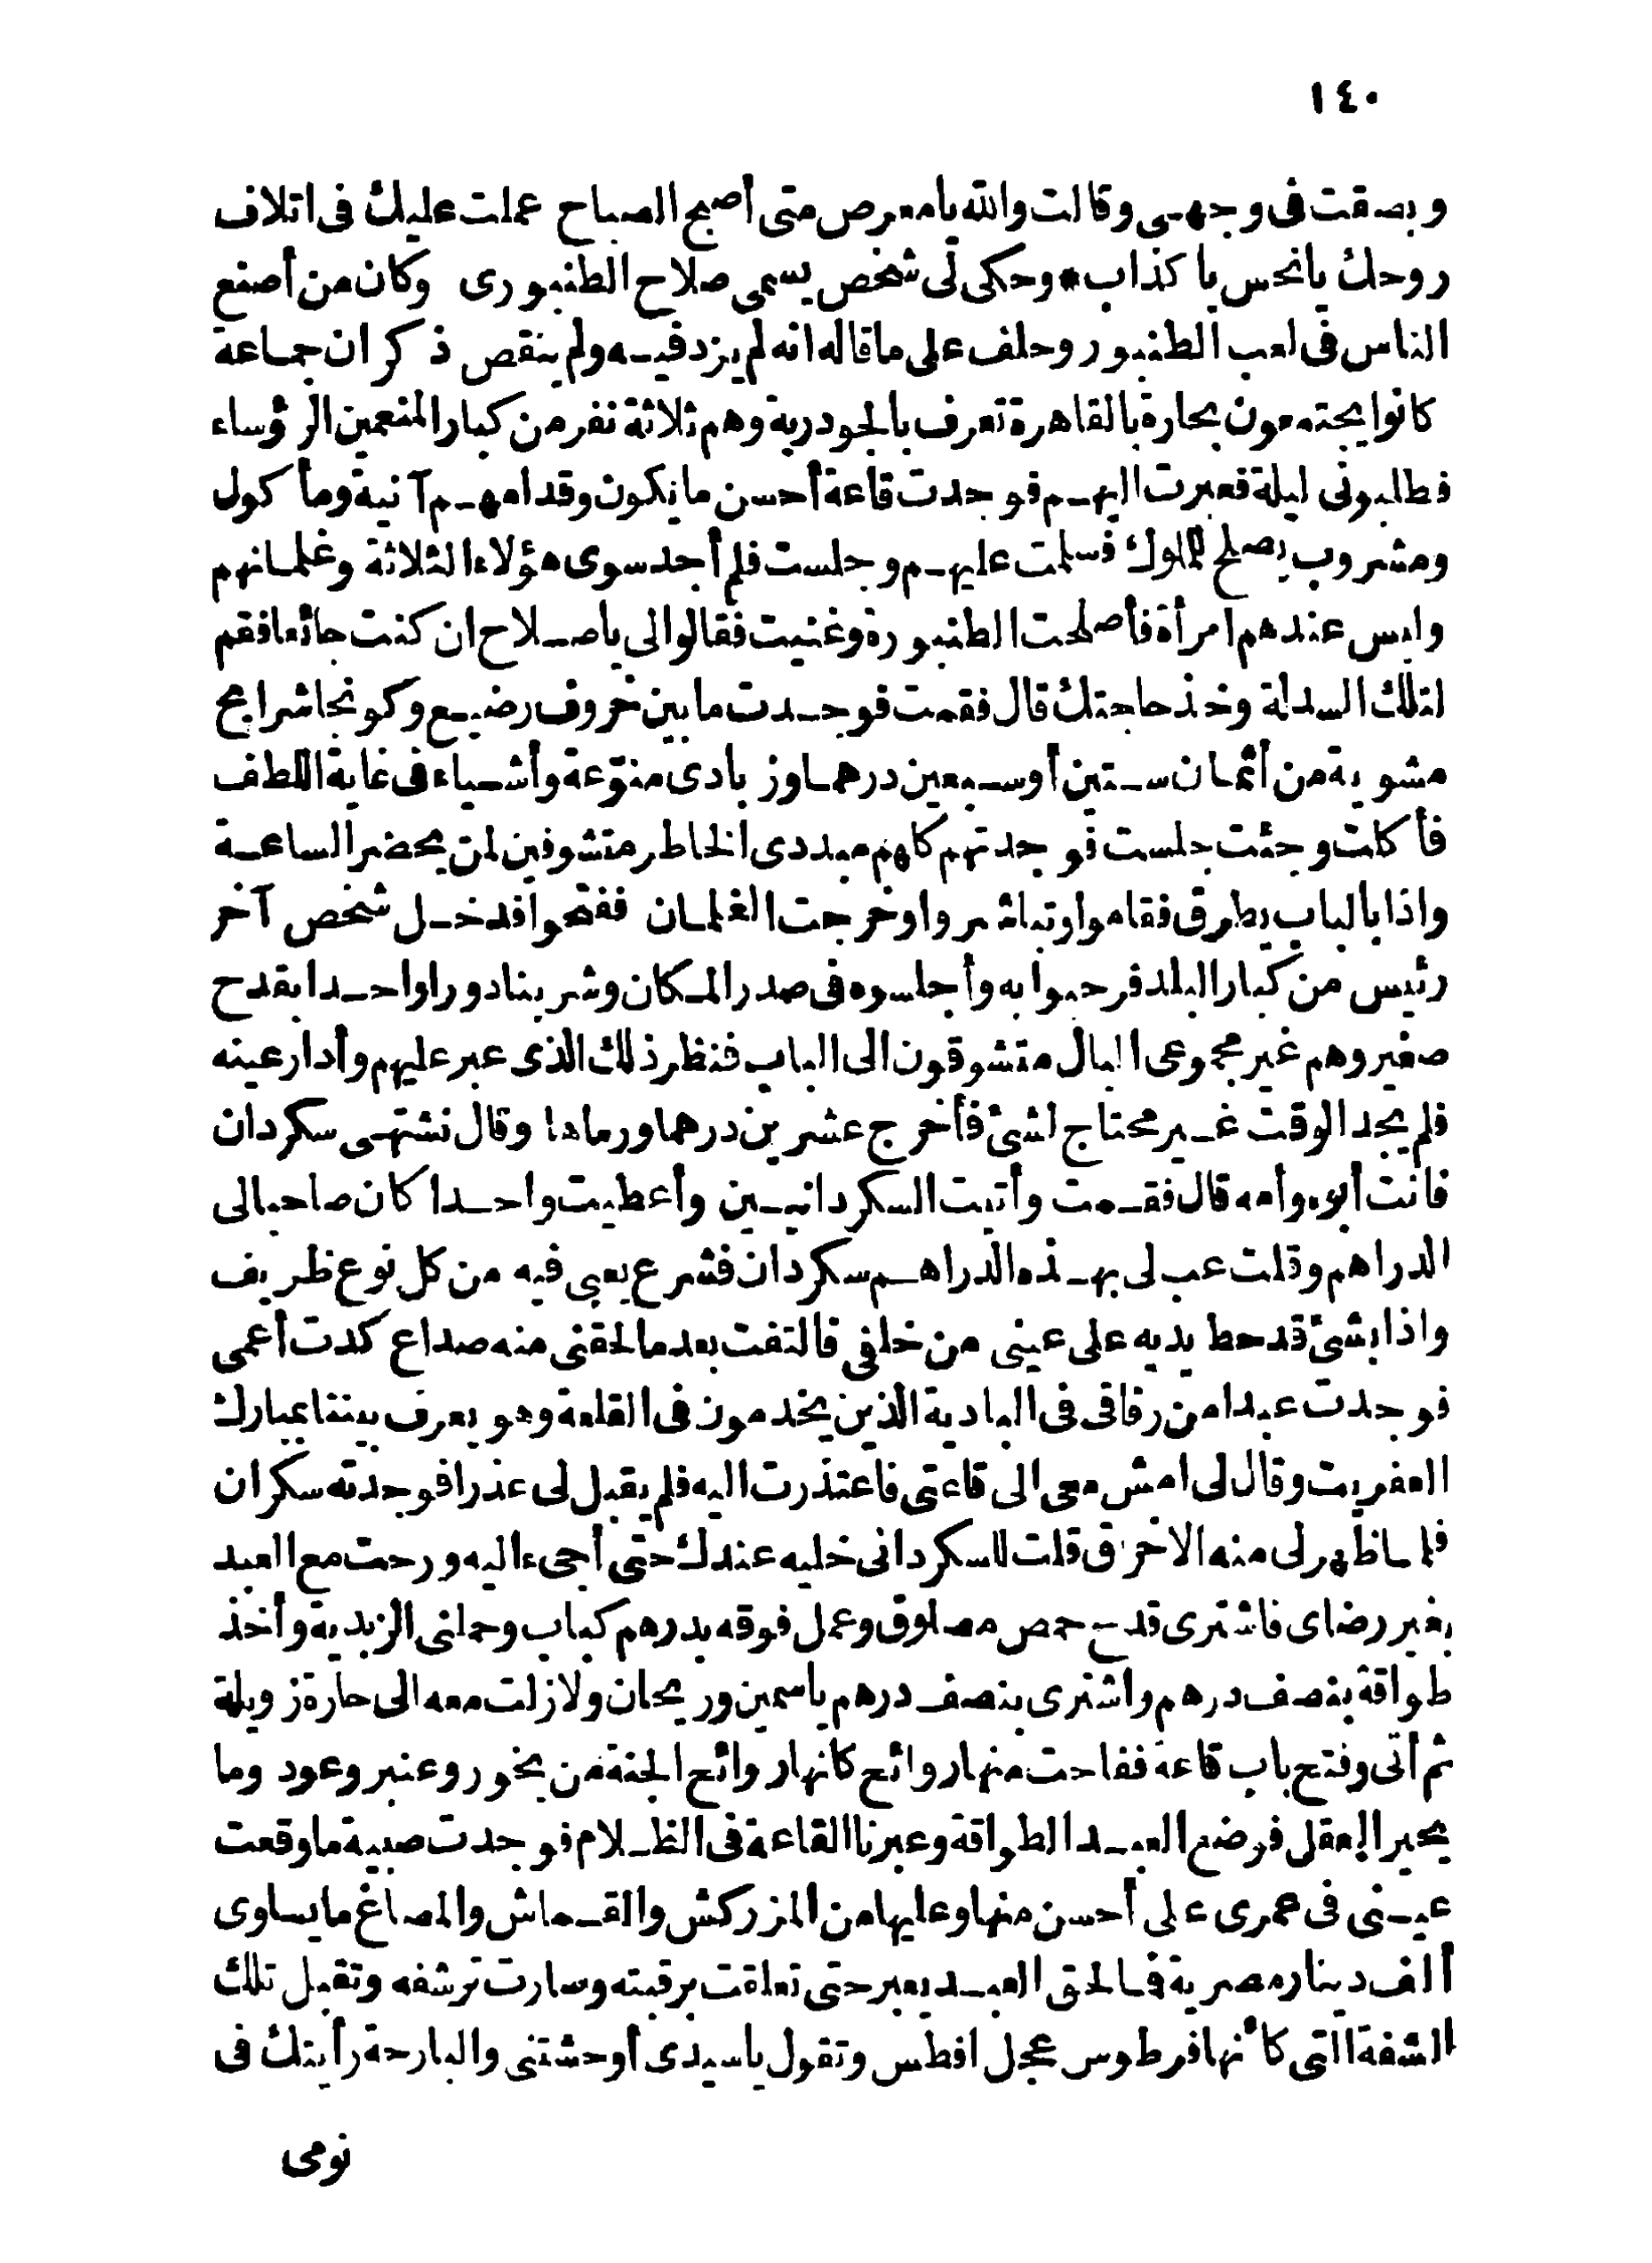 ١٤٠
وبصقت فى وجهى وقالت والله يا معرص متى أصبح الصباح عملت عليك فى اتلاف
روحك يا نحس يا كذاب * وحكى لى شخص يسمى صلاح الطنبورى وكان من أصنع
الناس فى لعب الطنبور وحلف على ما قاله انه لم يزد فيه ولم ينقص ذكر ان جماعة
كانوا يجتمعون بحارة بالقاهرة تعرف بالجودرية وهم ثلاثة نفر من كبار المنعمين الرؤساء
فطلبونى ليلة فعبرت اليهم فوجدت قاعة أحسن ما يكون وقدامهم آنية ومأكول
ومشروب يصلح للملوك فسلمت عليهم وجلست فلم أجد سوى هؤلاء الثلاثة وغلمانهم
وليس عندهم امرأة فأصلحت الطنبورة وغنيت فقالوا لى يا صلاح ان كنت جائعا فقم
لتلك السدلة وخذ حاجتك قال فقمت فوجدت ما بين خروف رضيع وكونجا شرايح
مشوية من أثمان ستين أو سبعين درهما وزبادى منوّعة وأشياء فى غاية اللطف
فأكلت وجئت جلست فوجدتهم كلهم مبددى الخاطر متشوفين لمن يحضر الساعة
واذا بالباب يطرق فقاموا وتباشروا وخرجت الغلمان ففتحوا فدخل شخص آخر
رئيس من كبار البلد فرحبوا به وأجلسوه فى صدر المكان وشربنا دورا واحدا بقدح
صغير وهم غير مجموعى البال متشوقون الى الباب فنظر ذلك الذى عبر عليهم وأدار عينه
فلم يجد الوقت غير محتاج لشئ فأخرج عشرين درهما ورماها وقال نشتهى سكردان
فانت أبوه وأمه قال فقمت وأتيت السكردانيين وأعطيت واحدا كان صاحبا لى
الدراهم وقلت عب لى بهذه الدراهم سكردان فشرع يعبى فيه من كل نوع ظريف
واذا بشئ قد حط يديه على عينى من خلفى فالتفت بعد ما لحقنى منه صداع كدت أعمى
فوجدت عبدا من رفاقى فى البادية الذين يخدمون فى القلعة وهو يعرف بيننا بمبارك
العفريت وقال لى امش معى الى قاعتى فاعتذرت اليه فلم يقبل لى عذرا فوجدته سكران
فلما ظهر لى منه الاخرق قلت للسكردانى خليه عندك حتى أجىء اليه ورحت مع العبد
بغير رضاى فاشترى قدح حمص مصلوق وعمل فوقه بدرهم كباب وحملنى الزبدية وأخذ
طواقة بنصف درهم واشترى بنصف درهم ياسمين وريحان ولا زلت معه الى حارة زويلة
ثم أتى وفتح باب قاعة ففاحت منها روائح كانها روائح الجنة من بخور وعنبر وعود وما
يحير العقل فوضع العبد الطواقة وعبرنا القاعة فى الظلام فوجدت صبية ما وقعت
عينى فى عمرى على أحسن منها وعليها من المزركش والقماش والمصاغ ما يساوى
ألف دينار مصرية فما لحق العبد يعبر حتى تعلقت برقبته وصارت ترشفه وتقبل تلك
الشفة التى كأنها فرطوس عجل افطس وتقول يا سيدى أوحشتنى والبارحة رأيتك فى
نومى